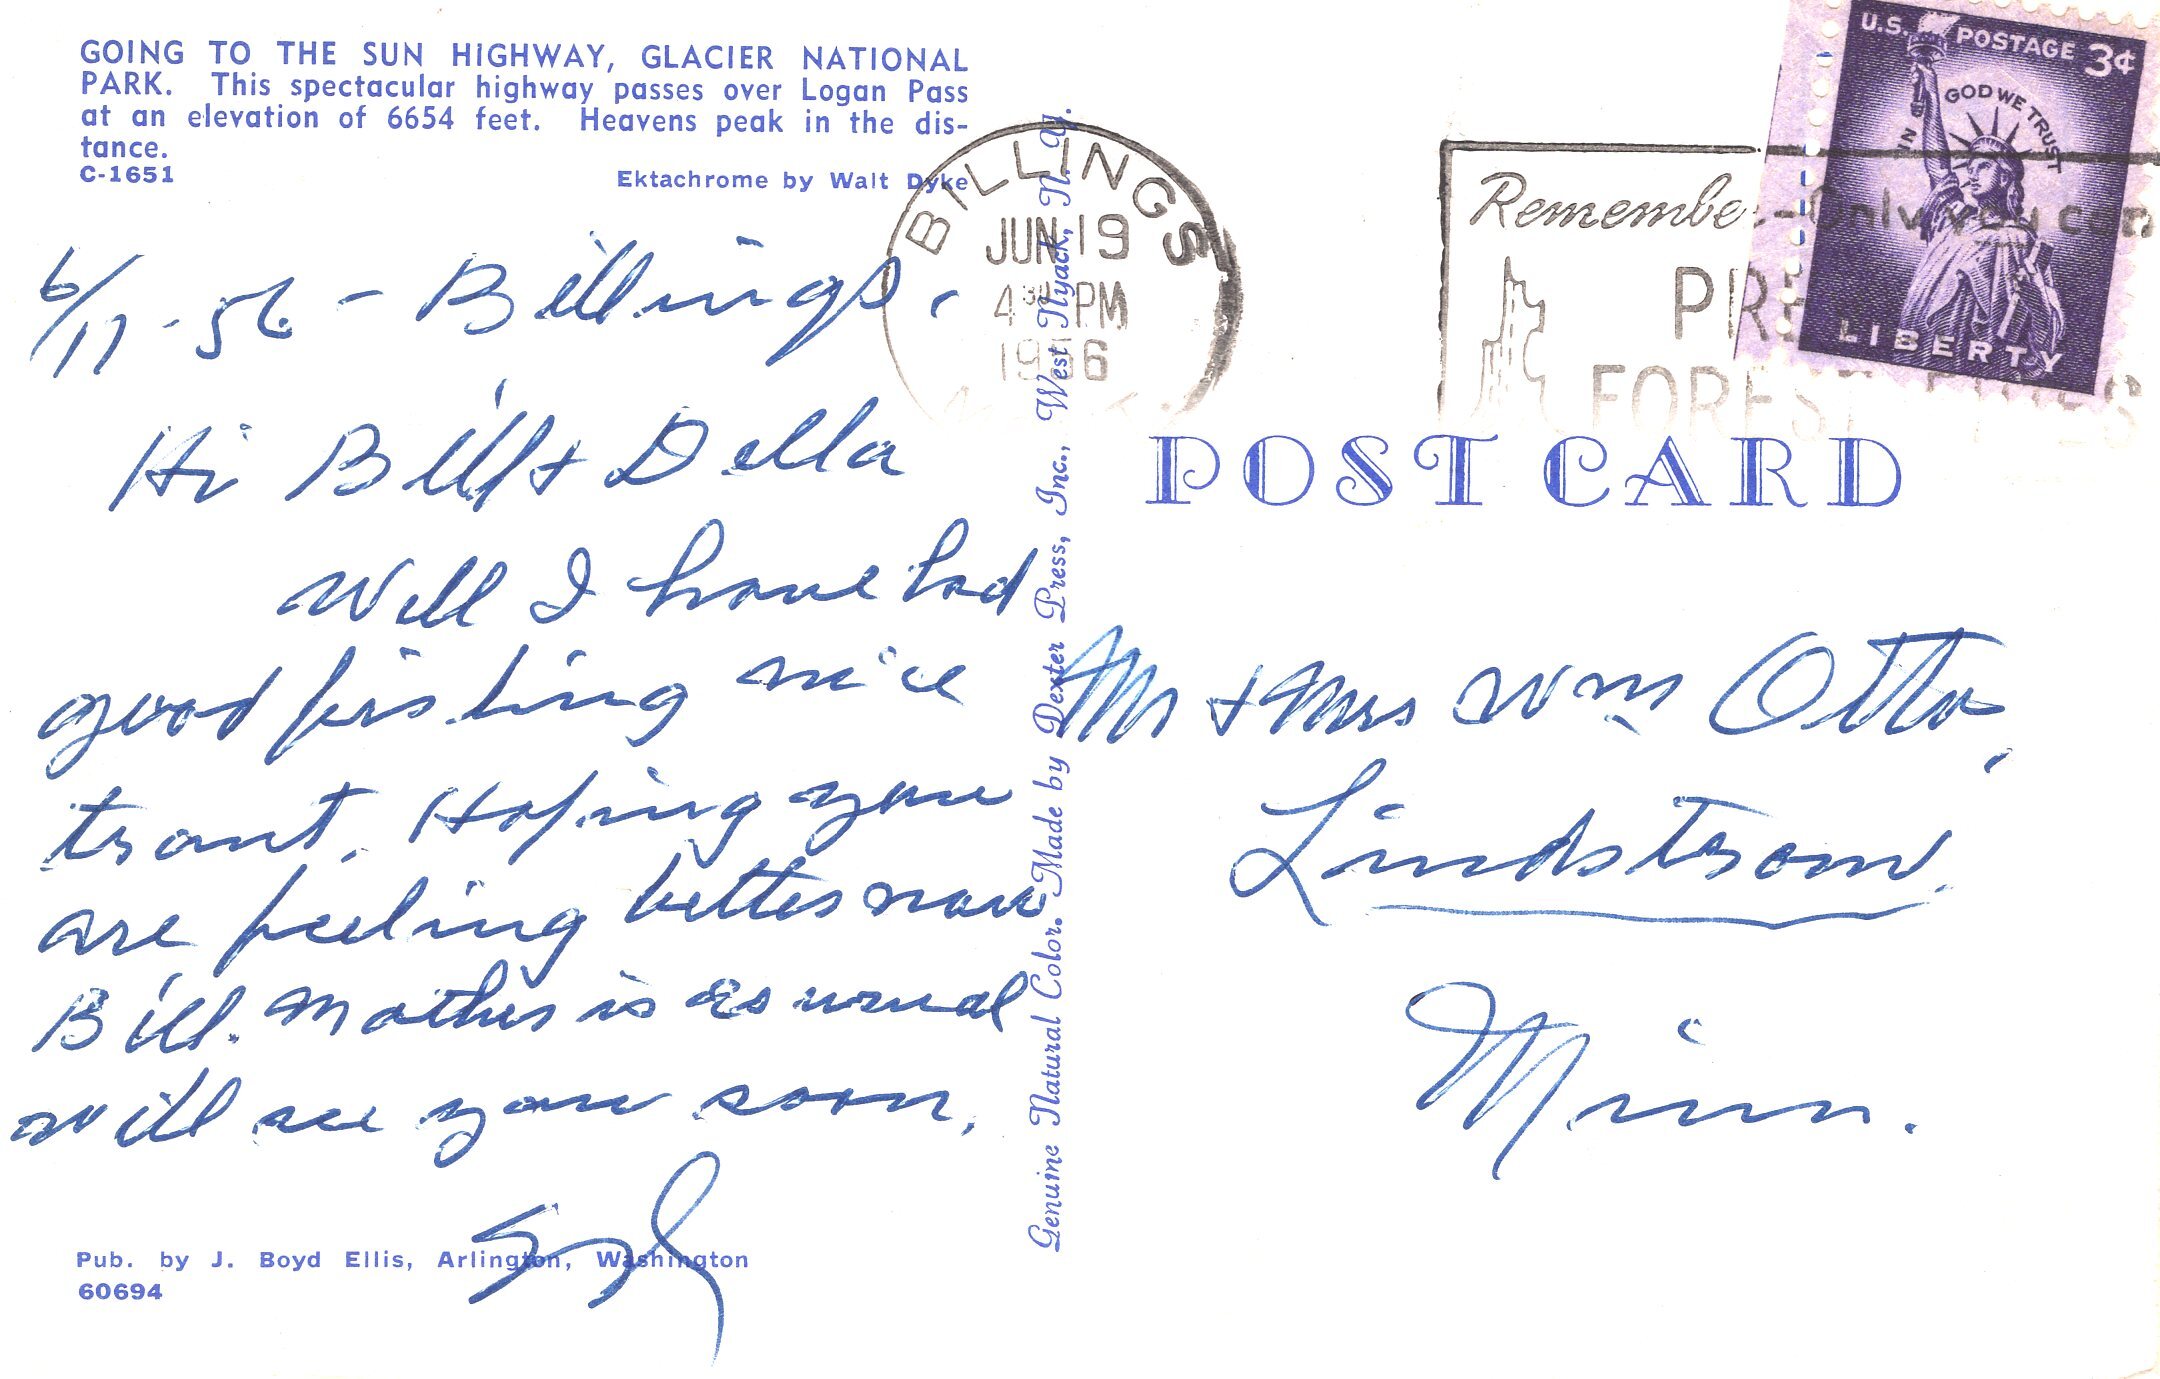 GOING TO THE SUN HIGHWAY, GLACIER NATIONAL
PARK. This spectacular highway passes over Logan Pass
at an elevation of 6654 feet. Heavens peak in the dis-
tance.
C-1651
Ektachrome by Walt Dyke
6/17-56 - Billings,
Hi Bill + Della
Well I have had
good fishing nice
trout. Hoping you
are feeling better now
Bill. Mother is as usual
will see you soon,
Pub. by J. Boyd Ellis, Arlington, Washington
60694
Genuine Natural Color. Made by Dexter Press, Inc., West Nyack, N. Y.
BILLINGS
JUN 19
4 30 PM
1956
Remember - Only you can
PRE
FOREST FIRES
U.S. POSTAGE 3¢
IN GOD WE TRUST
LIBERTY
POST CARD
Mr + Mrs Wm Otto,
Lindstrom,
Minn.